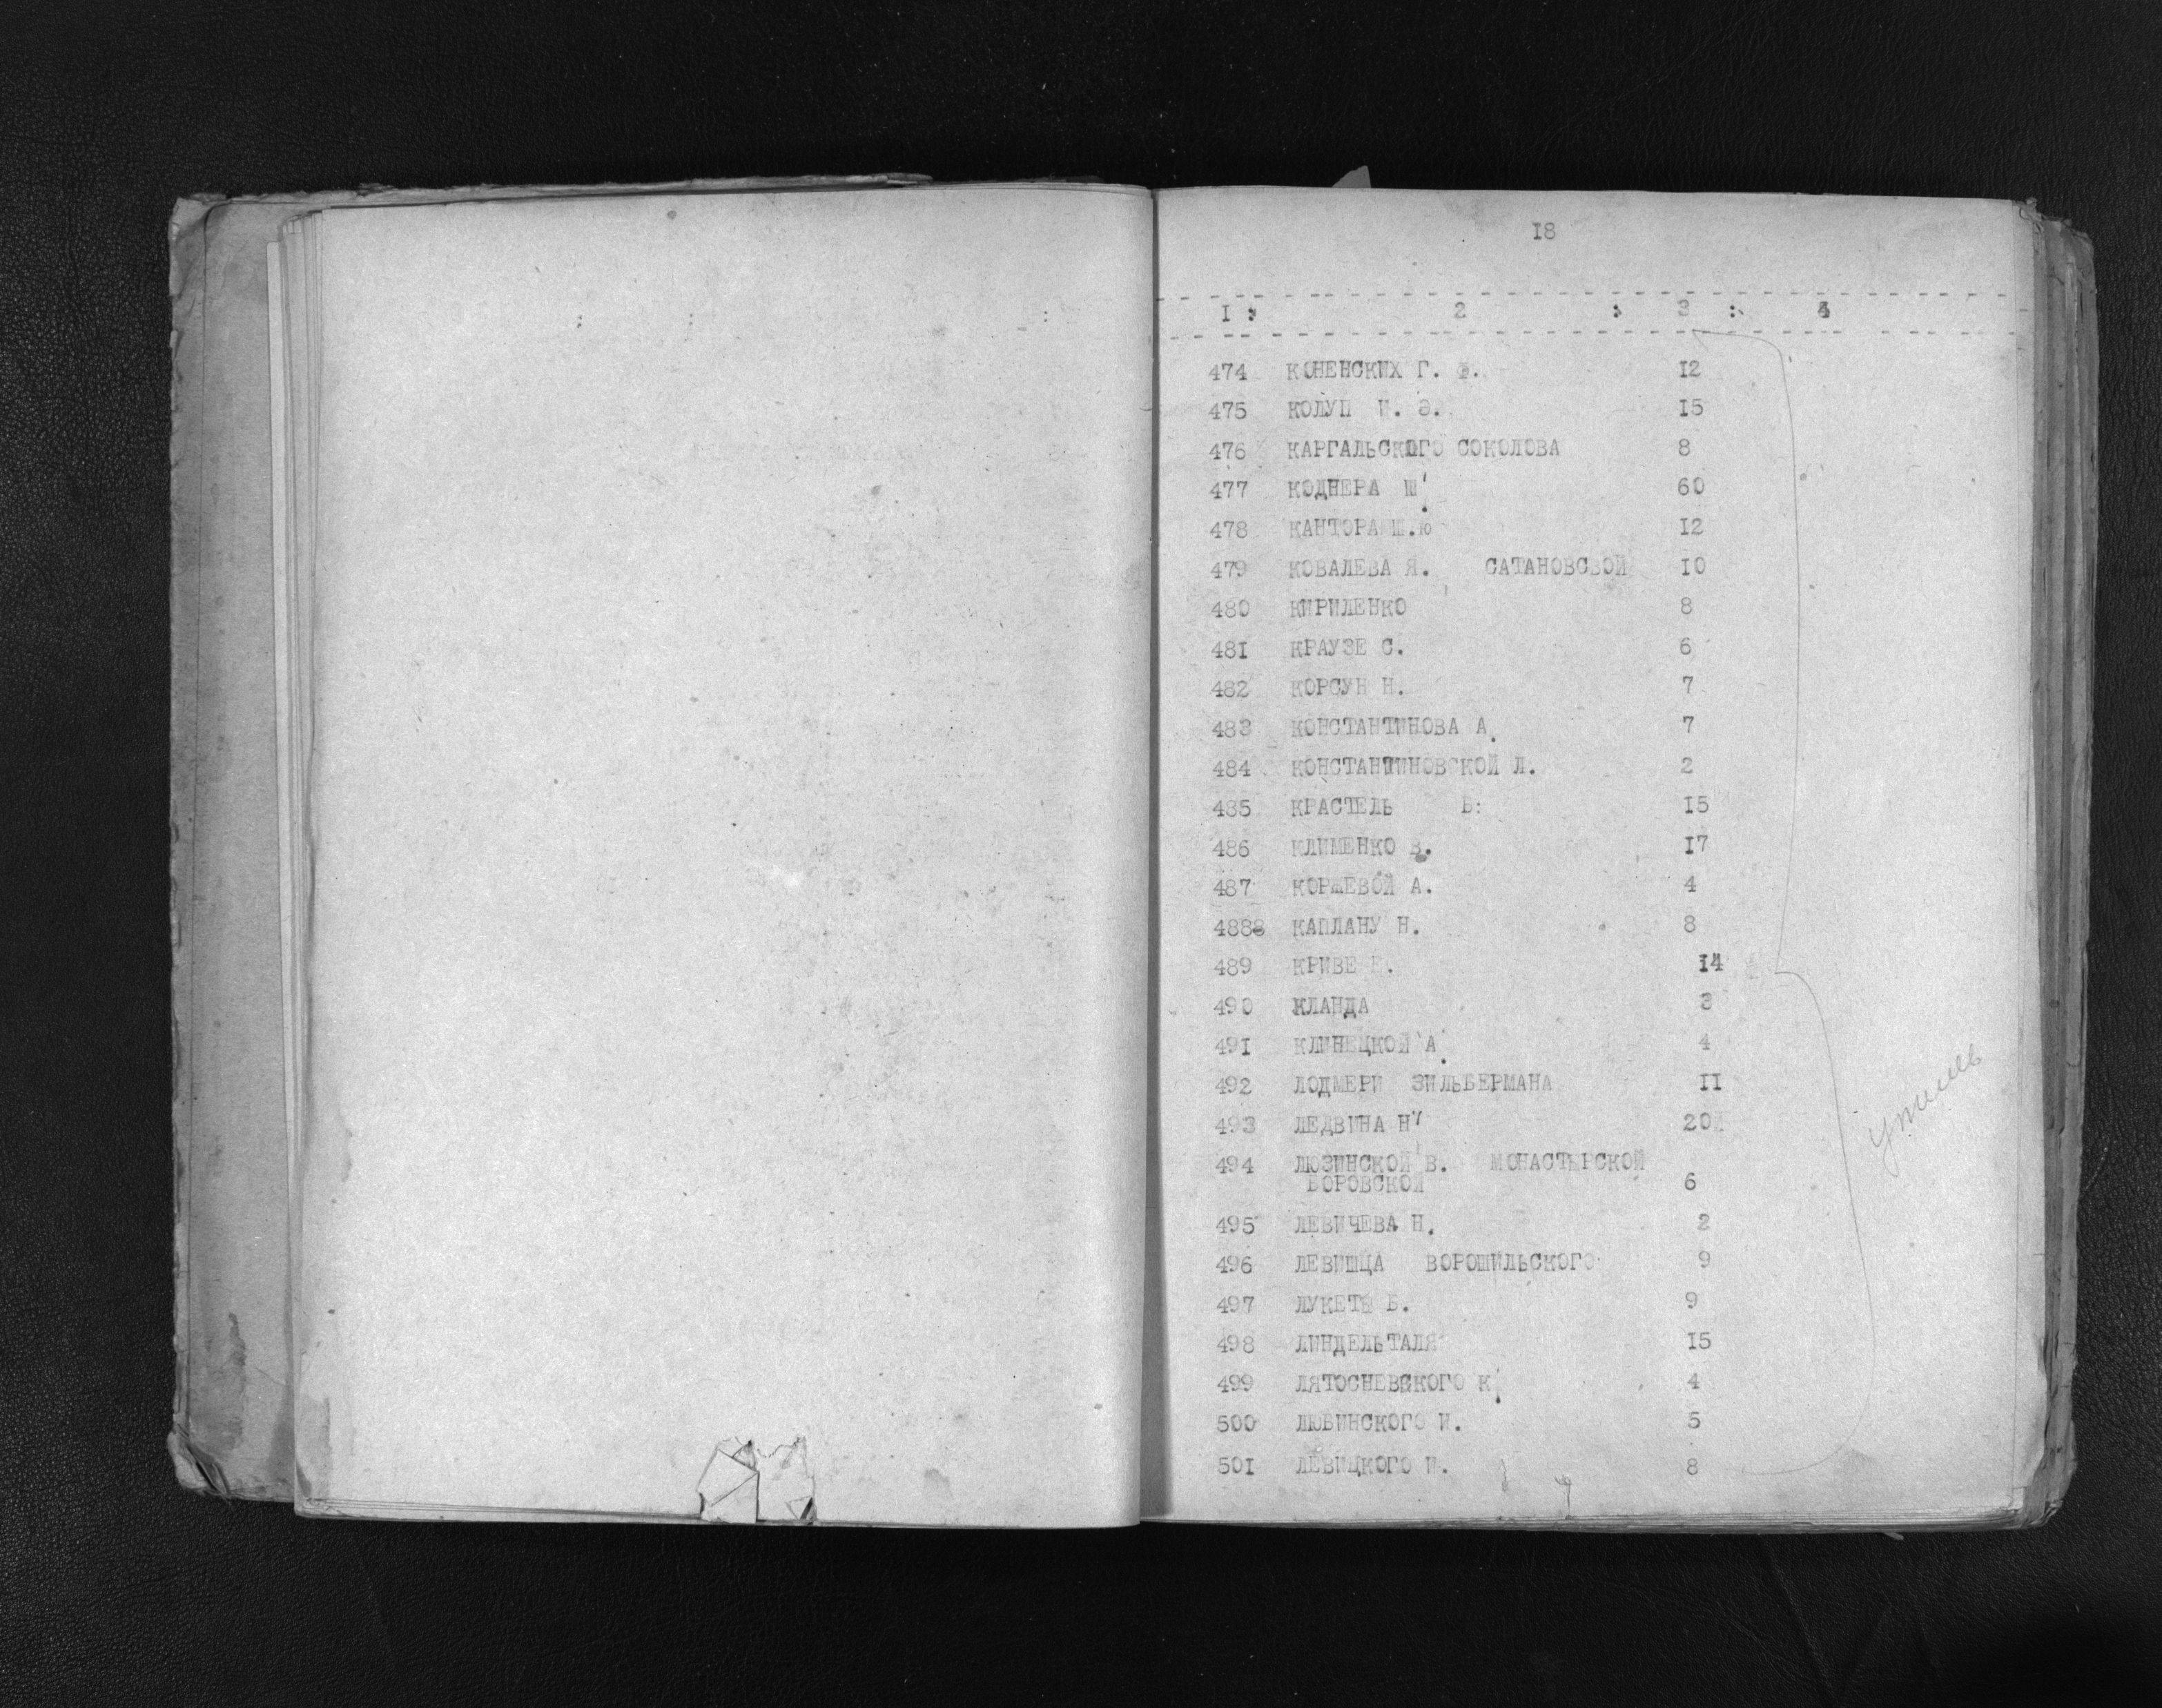 18
I : 2 : 3 : 4
474 КОНЕНСКИХ Г. Ф. I2
475 КОЛУП И. Э. I5
476 КАРГАЛЬСКОГО СОКОЛОВА 8
477 КОДНЕРА Ш. 60
478 КАНТОРА Ш.Ю I2
479 КОВАЛЕВА Я. САТАНОВСВОЙ I0
480 КИРИЛЕНКО 8
481 КРАУЗЕ С. 6
482 КОРСУН Н. 7
483 КОНСТАНТИНОВА А. 7
484 КОНСТАНТИНОВСКОЙ Л. 2
485 КРАСТЕЛЬ Б: I5
486 КЛИМЕНКО В. I7
487 КОРЖЕВОЙ А. 4
4888 КАПЛАНУ Н. 8
489 КРИВЕ I4
490 КЛАНДА 3
491 КЛИНЕЦКОЙ А. 4
492 ЛОДМЕРИ ЗИЛЬБЕРМАНА II
493 ЛЕДВИНА Н 20
494 ЛЮЗИНСКОЙ В. МОНАСТЫРСКОЙ
БОРОВСКОЙ 6
495 ЛЕВИЧЕВА Н. 2
496 ЛЕВИЩА ВОРОШИЛЬСКОГО 9
497 ЛУКЕТЫ Б. 9
498 ЛИНДЕЛЬТАЛЯ I5
499 ЛЯТОСНЕВСКОГО К. 4
500 ЛЮБИНСКОГО И. 5
501 ЛЕВИЦКОГО И. 8
утиль